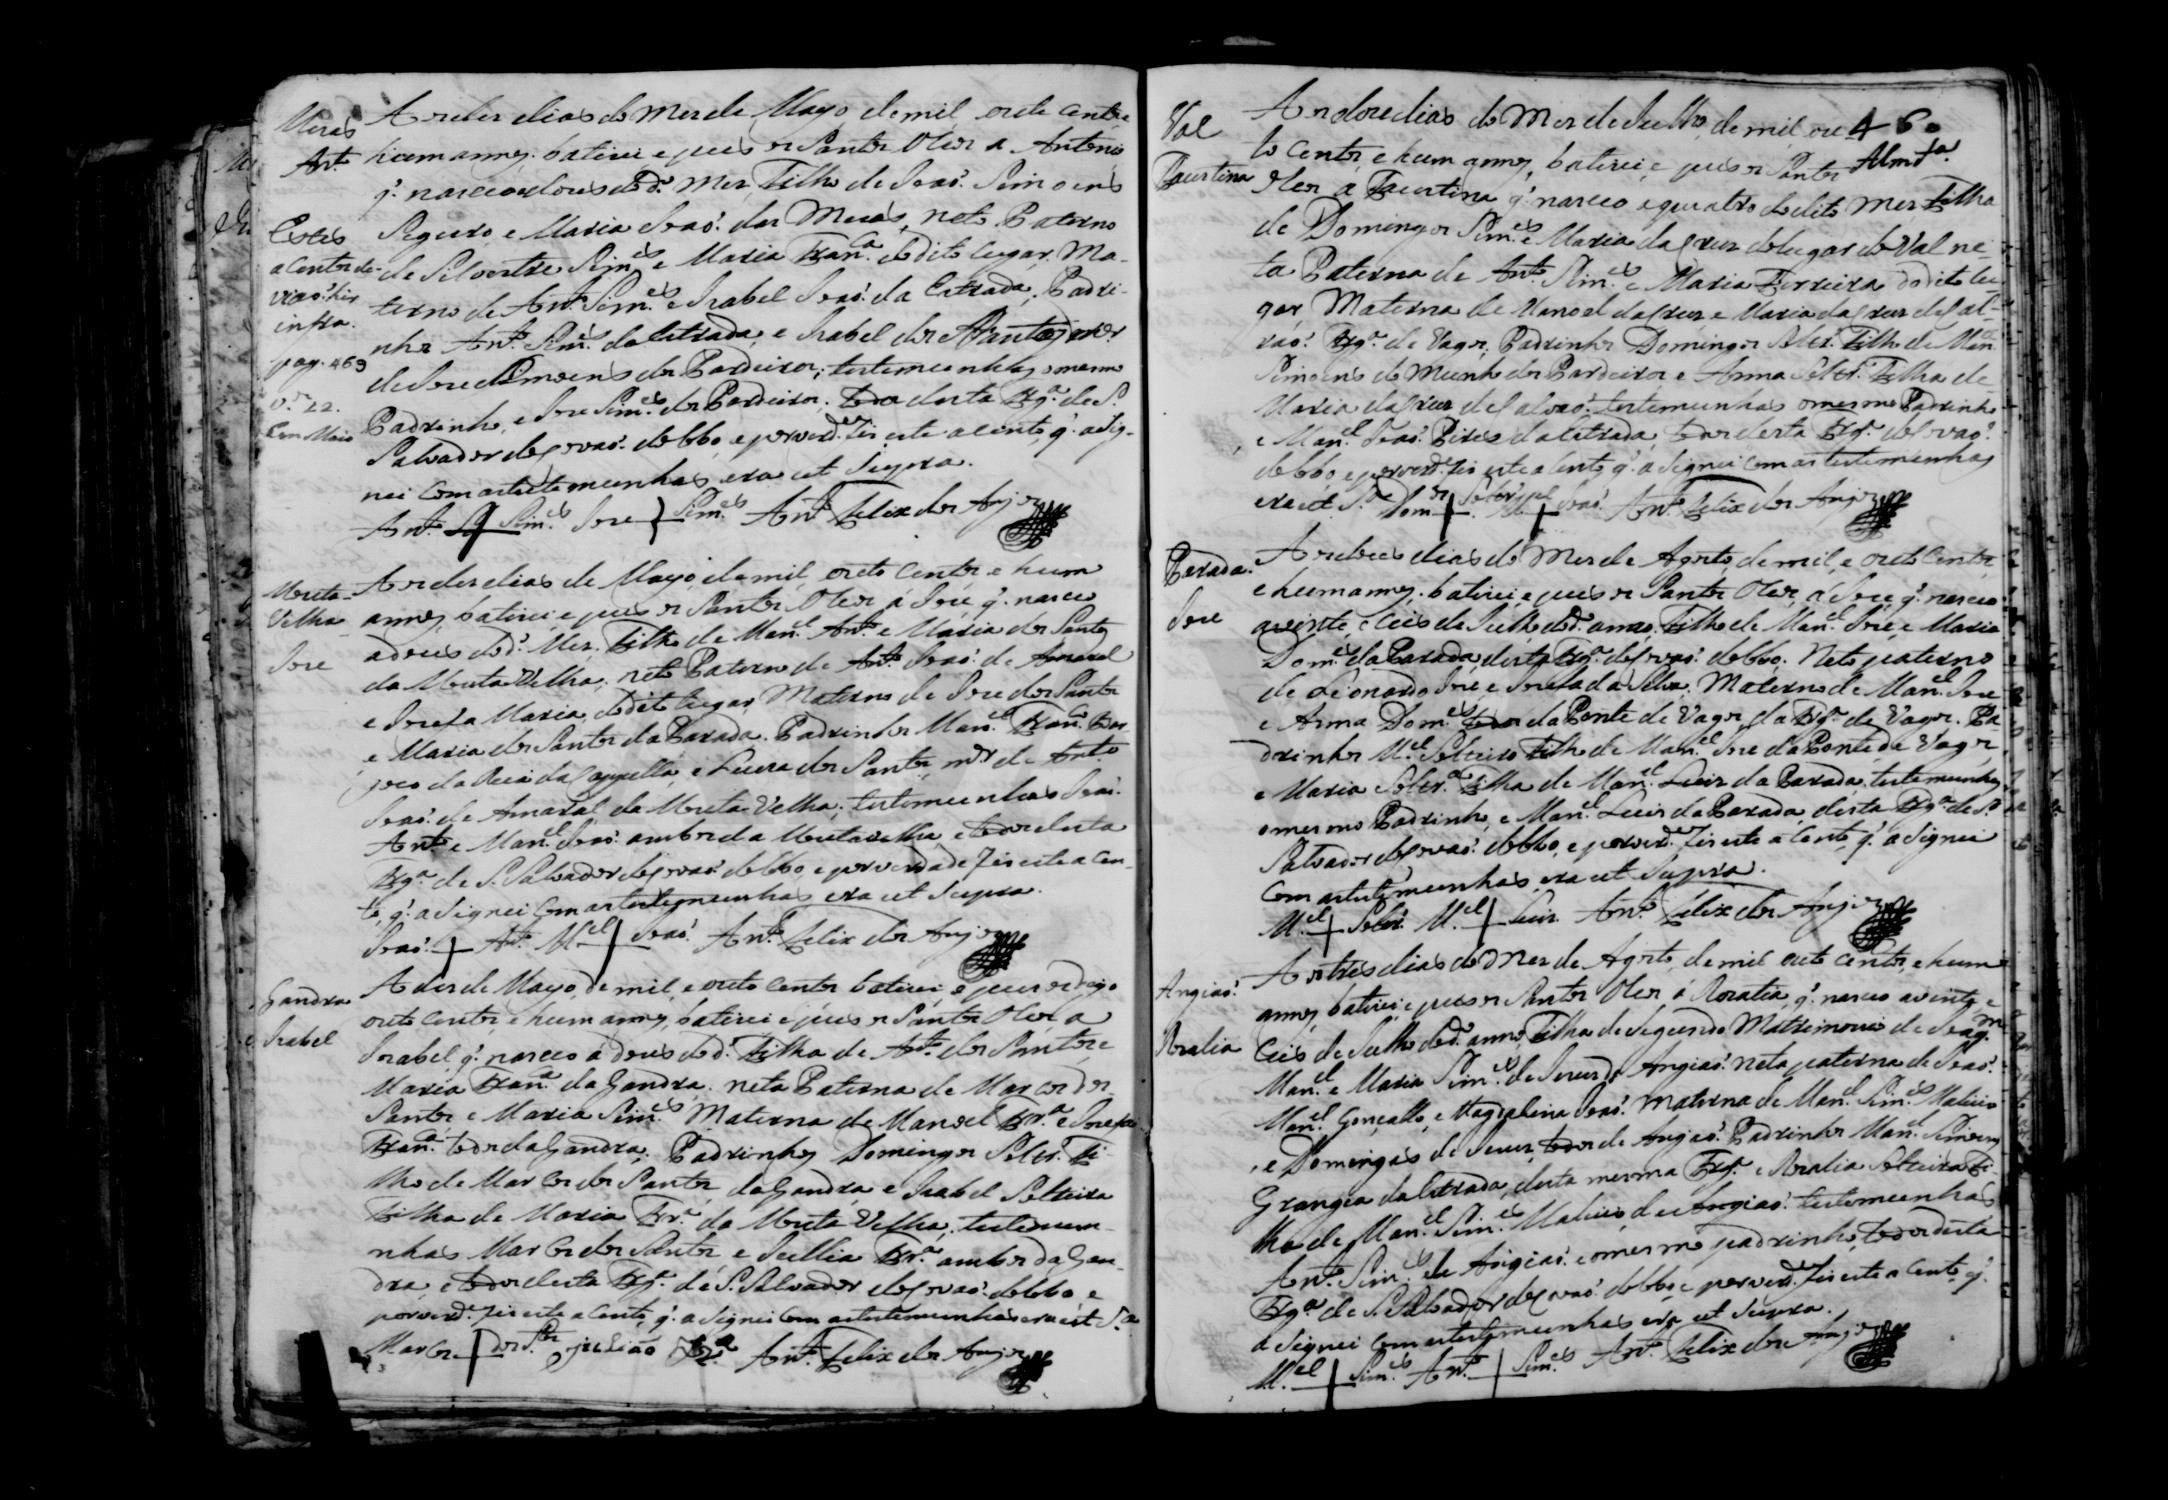 Meses
Ant.º
Estes
acentos de-
viaõ hir
infra.
pag. 469
v.º 22.
Com Maio
Aos des dias do Mes de Mayo de mil oito centos e
hum annos, batizei e pus os Santos Oleos a Antonio
q. nasceo aos dois do d.º Mes, Filho de Joaõ Simoens
Seguro, e Maria Joaõ das Mesas, neto Paterno
de Silvestre Sim.es e Maria Fran.ca do dito lugar. Ma-
terno de Ant.º Sim.es e Izabel Joaõ da Estrada, Padri-
nhos Ant.º Sim.es da Estrada, e Izabel dos Santos
de Jose Simoens dos Pardeiros; testemunhas o mesmo
Padrinho, e Jose Sim.es dos Pardeiros, todos desta Frg.ª de S.
Salvador de Covaõ do Lobo, e por verd.e fis este acento q. asig-
nei com as testemunhas, era ut supra.
Ant.º Sim.es Jose Sim.es Ant.º Felix dos Anjos
Mouta
Velha
Jose
Aos des dias de Mayo de mil oito centos e hum
annos, batizei e pus os Santos Oleos á Jose, q. nasceo
a dous do d.º Mes. Filho de Man.el Ant.º e Maria dos Santos
da Mouta Velha, neto Paterno de Ant.º Joaõ de Amaral
e Josefa Maria, do dito lugar, Materno de Jose dos Santos
e Maria dos Santos da Parada. Padrinhos Man.el Fran.co
da Rua da Cappella, e Luiza dos Santos, m.er de Ant.º
Joaõ de Amaral da Mouta Velha; testemunhas Joaõ
Ant.º e Man.el Joaõ ambos da Mouta velha, e todos desta
Frg.ª de S. Salvador de Covaõ do Lobo, e por verdade fis este acen-
to, q. asignei com as testemunhas era ut supra.
Joaõ Ant.º M.el Joaõ Ant.º Felix dos Anjos
Gandra
Izabel
A des de Mayo, de mil, e oito centos batizei e pus os digo
oito centos e hum annos, batizei e pus os Santos Oleos a
Izabel q. nasceo á dous do d.º Filha de Ant.º dos Santos e
Maria Fran.ca da Gandra, neta Paterna de Marcos dos
Santos e Maria Sim.es, Materna de Manoel Fr.ª e Josefa
Fran.ca todos da Gandra; Padrinhos Domingos Soltr.º Fi-
lho de Marcos dos Santos da Gandra e Izabel Solteira
Filha de Maria Fr.ª da Mouta Velha; testemu-
nhas Marcos dos Santos e Fr.ª ambos da Gan-
dra, e todos desta Frg.ª de S. Salvador de Covaõ do Lobo, e
por verd.e fis este acento q. asignei com as testemunhas era ut S.ª
Marcos dos S.tos juliaõ Fr.ª Ant.º Felix dos Anjos
460
Alm.da
Val
Faustina
Aos dose dias do Mes de Julho, de mil oi-
to centos, e hum annos, batizei e pus os Santos
Oleos a Faustina q. nasceo a quatro do dito mes Filha
de Domingos Sim.es e Maria da Crus do lugar do Val ne-
ta Paterna de Ant.º Sim.es e Maria Ferreira do dito lu-
gar Materna de Manoel da Crus e Maria da Crus de Sal-
vaõ Frg.ª de Vagos; Padrinhos Domingos Soltr.º Filho de Man.el
Simoens do Munho dos Pardeiros e Anna Soltr.ª Filha de
Maria da Crus de Salvaõ, testemunhas o mesmo Padrinho
e Man.el Joaõ Pires da Estrada, todos desta Frg.ª de Covaõ
do Lobo e por verd.e fis este acento q. asignei com as testemunhas
era ut S.ª Dom.os Soltr.º M.el Joaõ Ant.º Felix dos Anjos
Parada
Jose
Aos dous dias do Mes de Agosto, de mil, e oito centos
e hum annos, batizei e pus os Santos Oleos, á Jose q. nasceo
a vinte e seis de Julho do d.º anno, Filho de Man.el Jose, e Maria
Dom.es da Parada desta Frg.ª de Covaõ do Lobo. Neto paterno
de Leonardo Jose e Josefa da Silva. Materno de Man.el Jose
e Anna Dom.es da Ponte de Vagos, da Frg.ª de Vagos. Pa-
drinhos M.el Solteiro Filho de Man.el Jose da Ponte de Vagos
e Maria Soltr.ª Filha de Man.el Luis da Parada, testemunhas
o mesmo Padrinho, e Man.el Luis da Parada, desta Frg.ª de S.
Salvador de Covaõ do Lobo, e por verd.e fis este acento, q. asignei
com as testemunhas, era ut supra.
M.el Soltr.º M.el Luis Ant.º Felix dos Anjos
Angiaõ
Rosalia
Aos tres dias do Mes de Agosto, de mil oito centos, e hum
annos, batizei e pus os Santos Oleos á Rosalia, q. nasceo a vinte e
seis de Julho do d.º anno, Filha de segundo Matrimonio de Joaõ
Man.el e Maria Sim.es de Jesus de Angiaõ. neta paterna de Joaõ
Man.el Gonçallo, e Magdalena Joaõ. Materna de Man.el Sim.es
e Domingas de Jesus, todos de Angiaõ. Padrinhos Man.el Simoens
Grangea da Estrada, desta mesma Frg.ª e Rosalia Solteira Fi-
lha de Man.el Sim.es de Angiaõ. testemunhas
Ant.º Sim.es de Angiaõ e o mesmo padrinho, todos desta
Frg.ª de S. Salvador de Covaõ do Lobo e por verd.e fis este acento q.
asignei com as testemunhas era ut supra.
M.el Sim.es Ant.º Sim.es Ant.º Felix dos Anjos